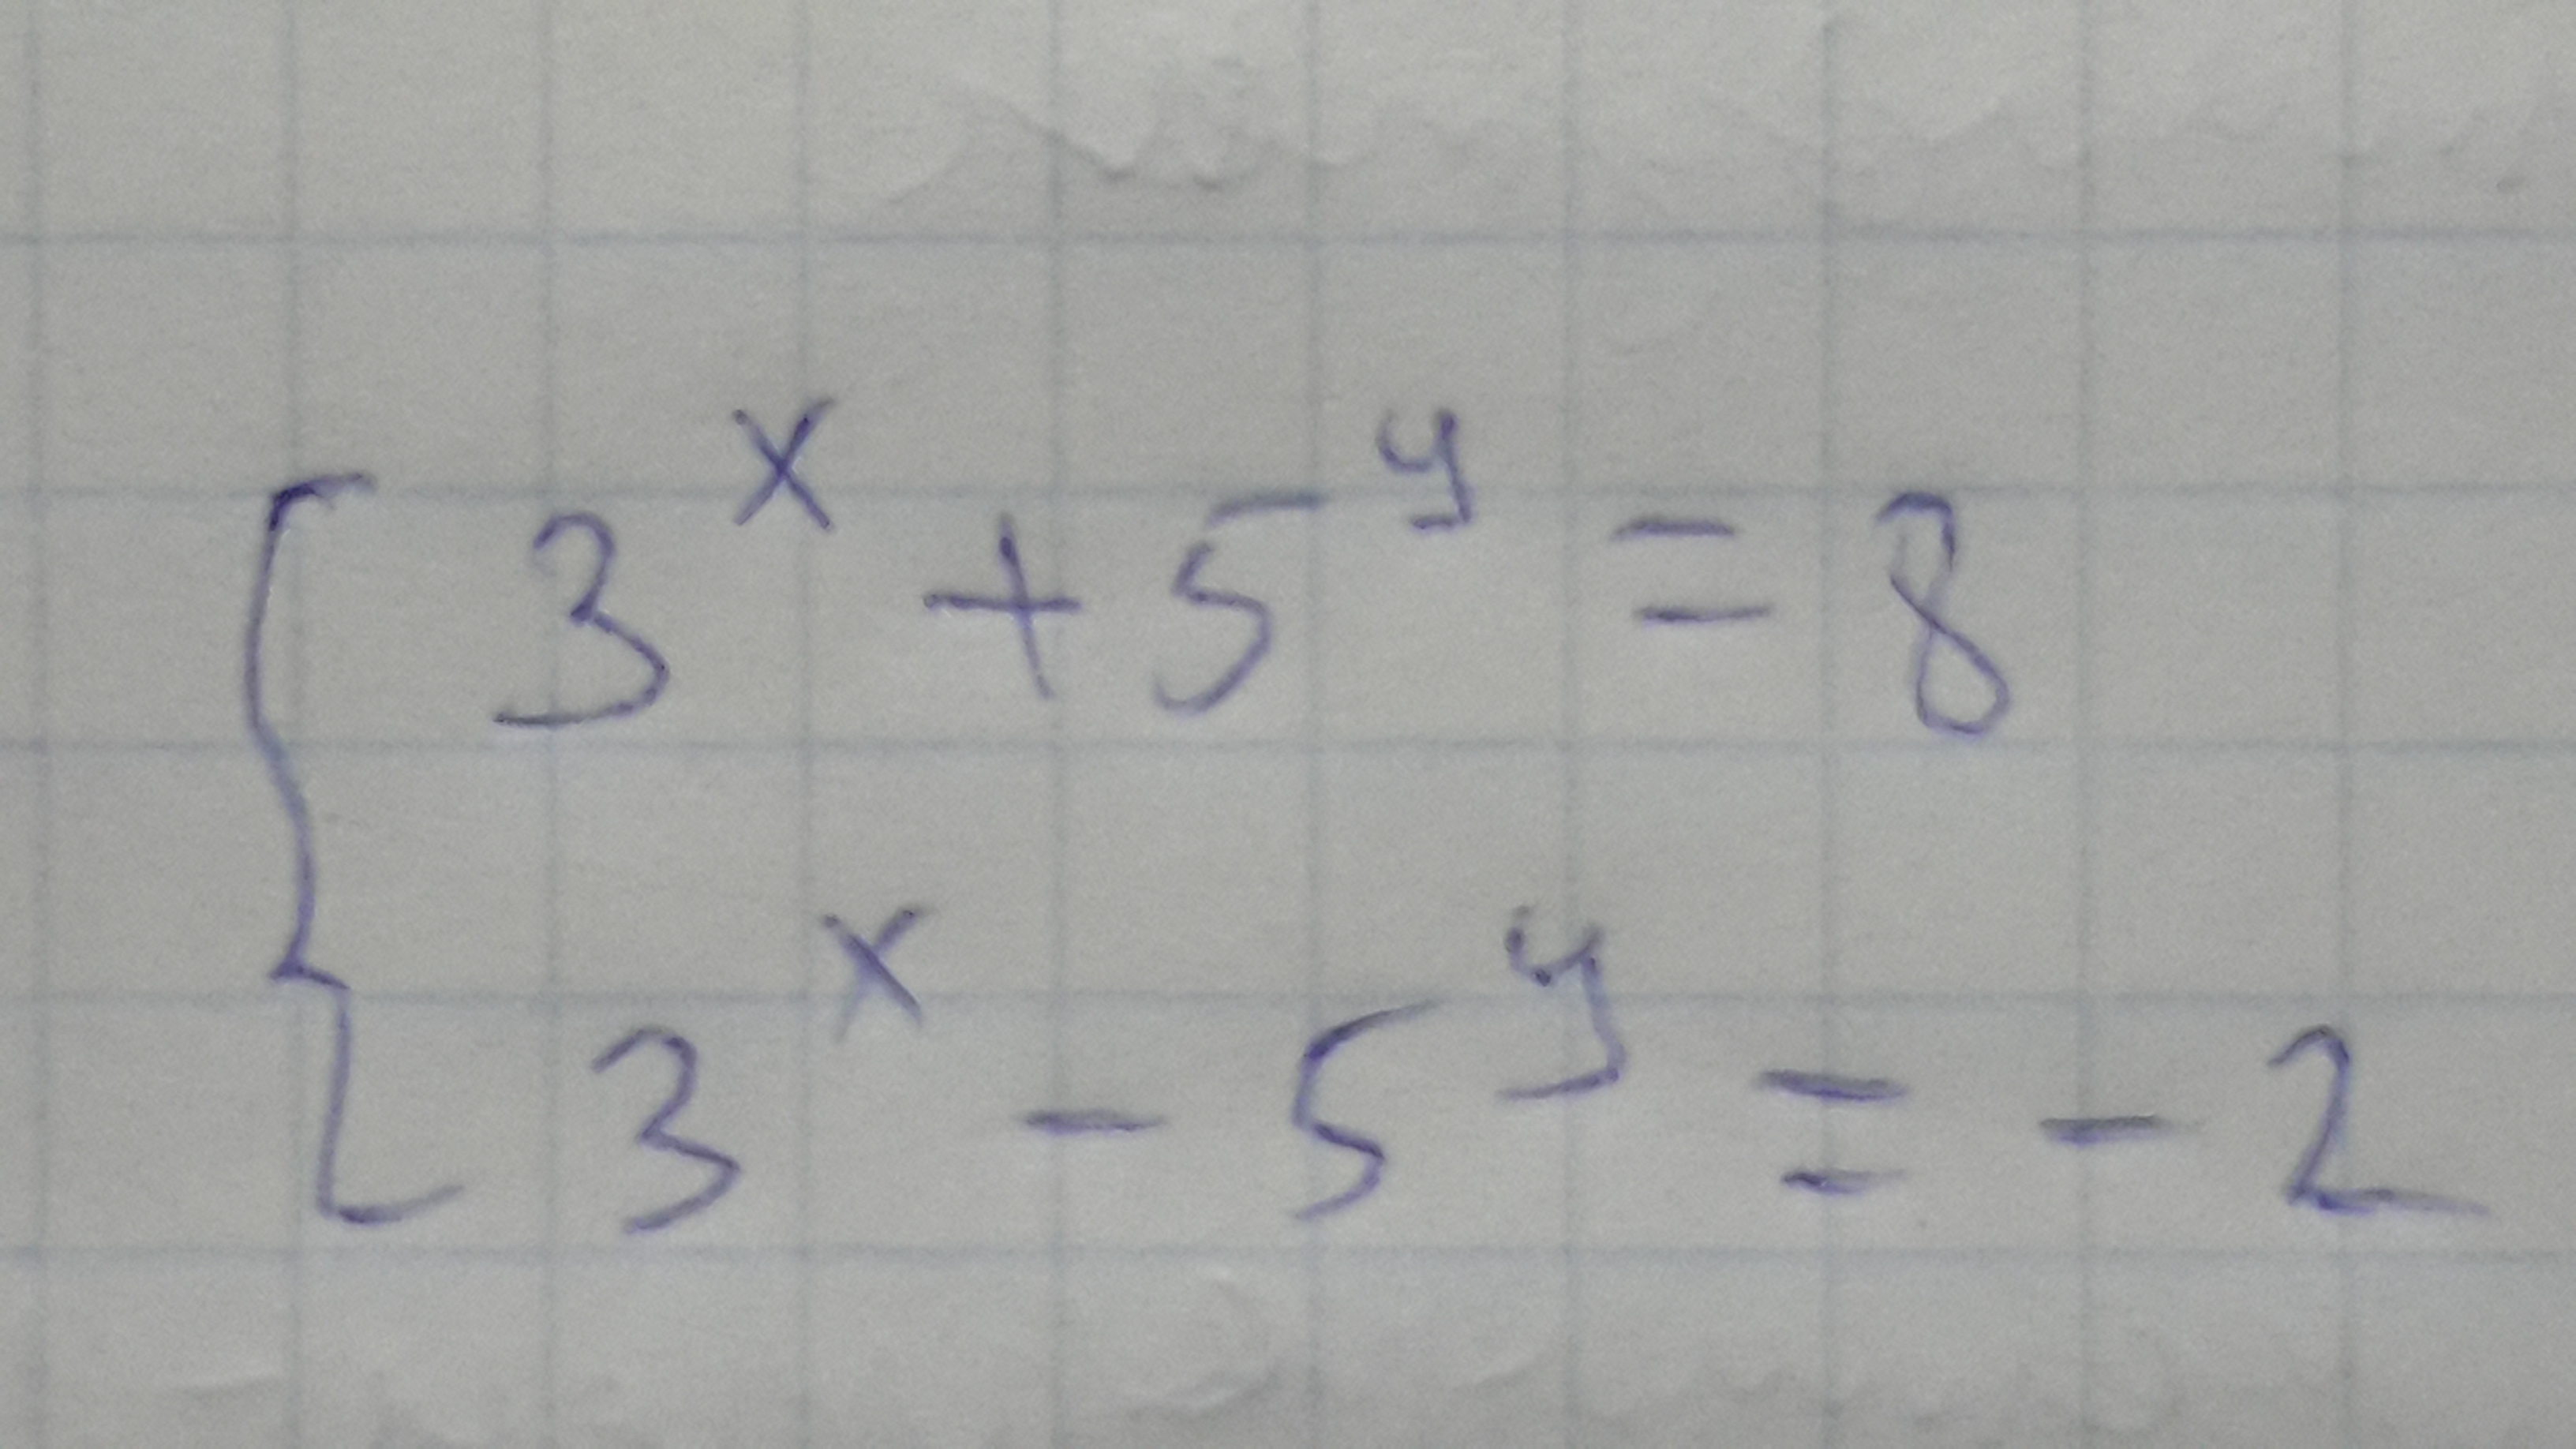 3^x + 5^y = 8
3^x - 5^y = -2